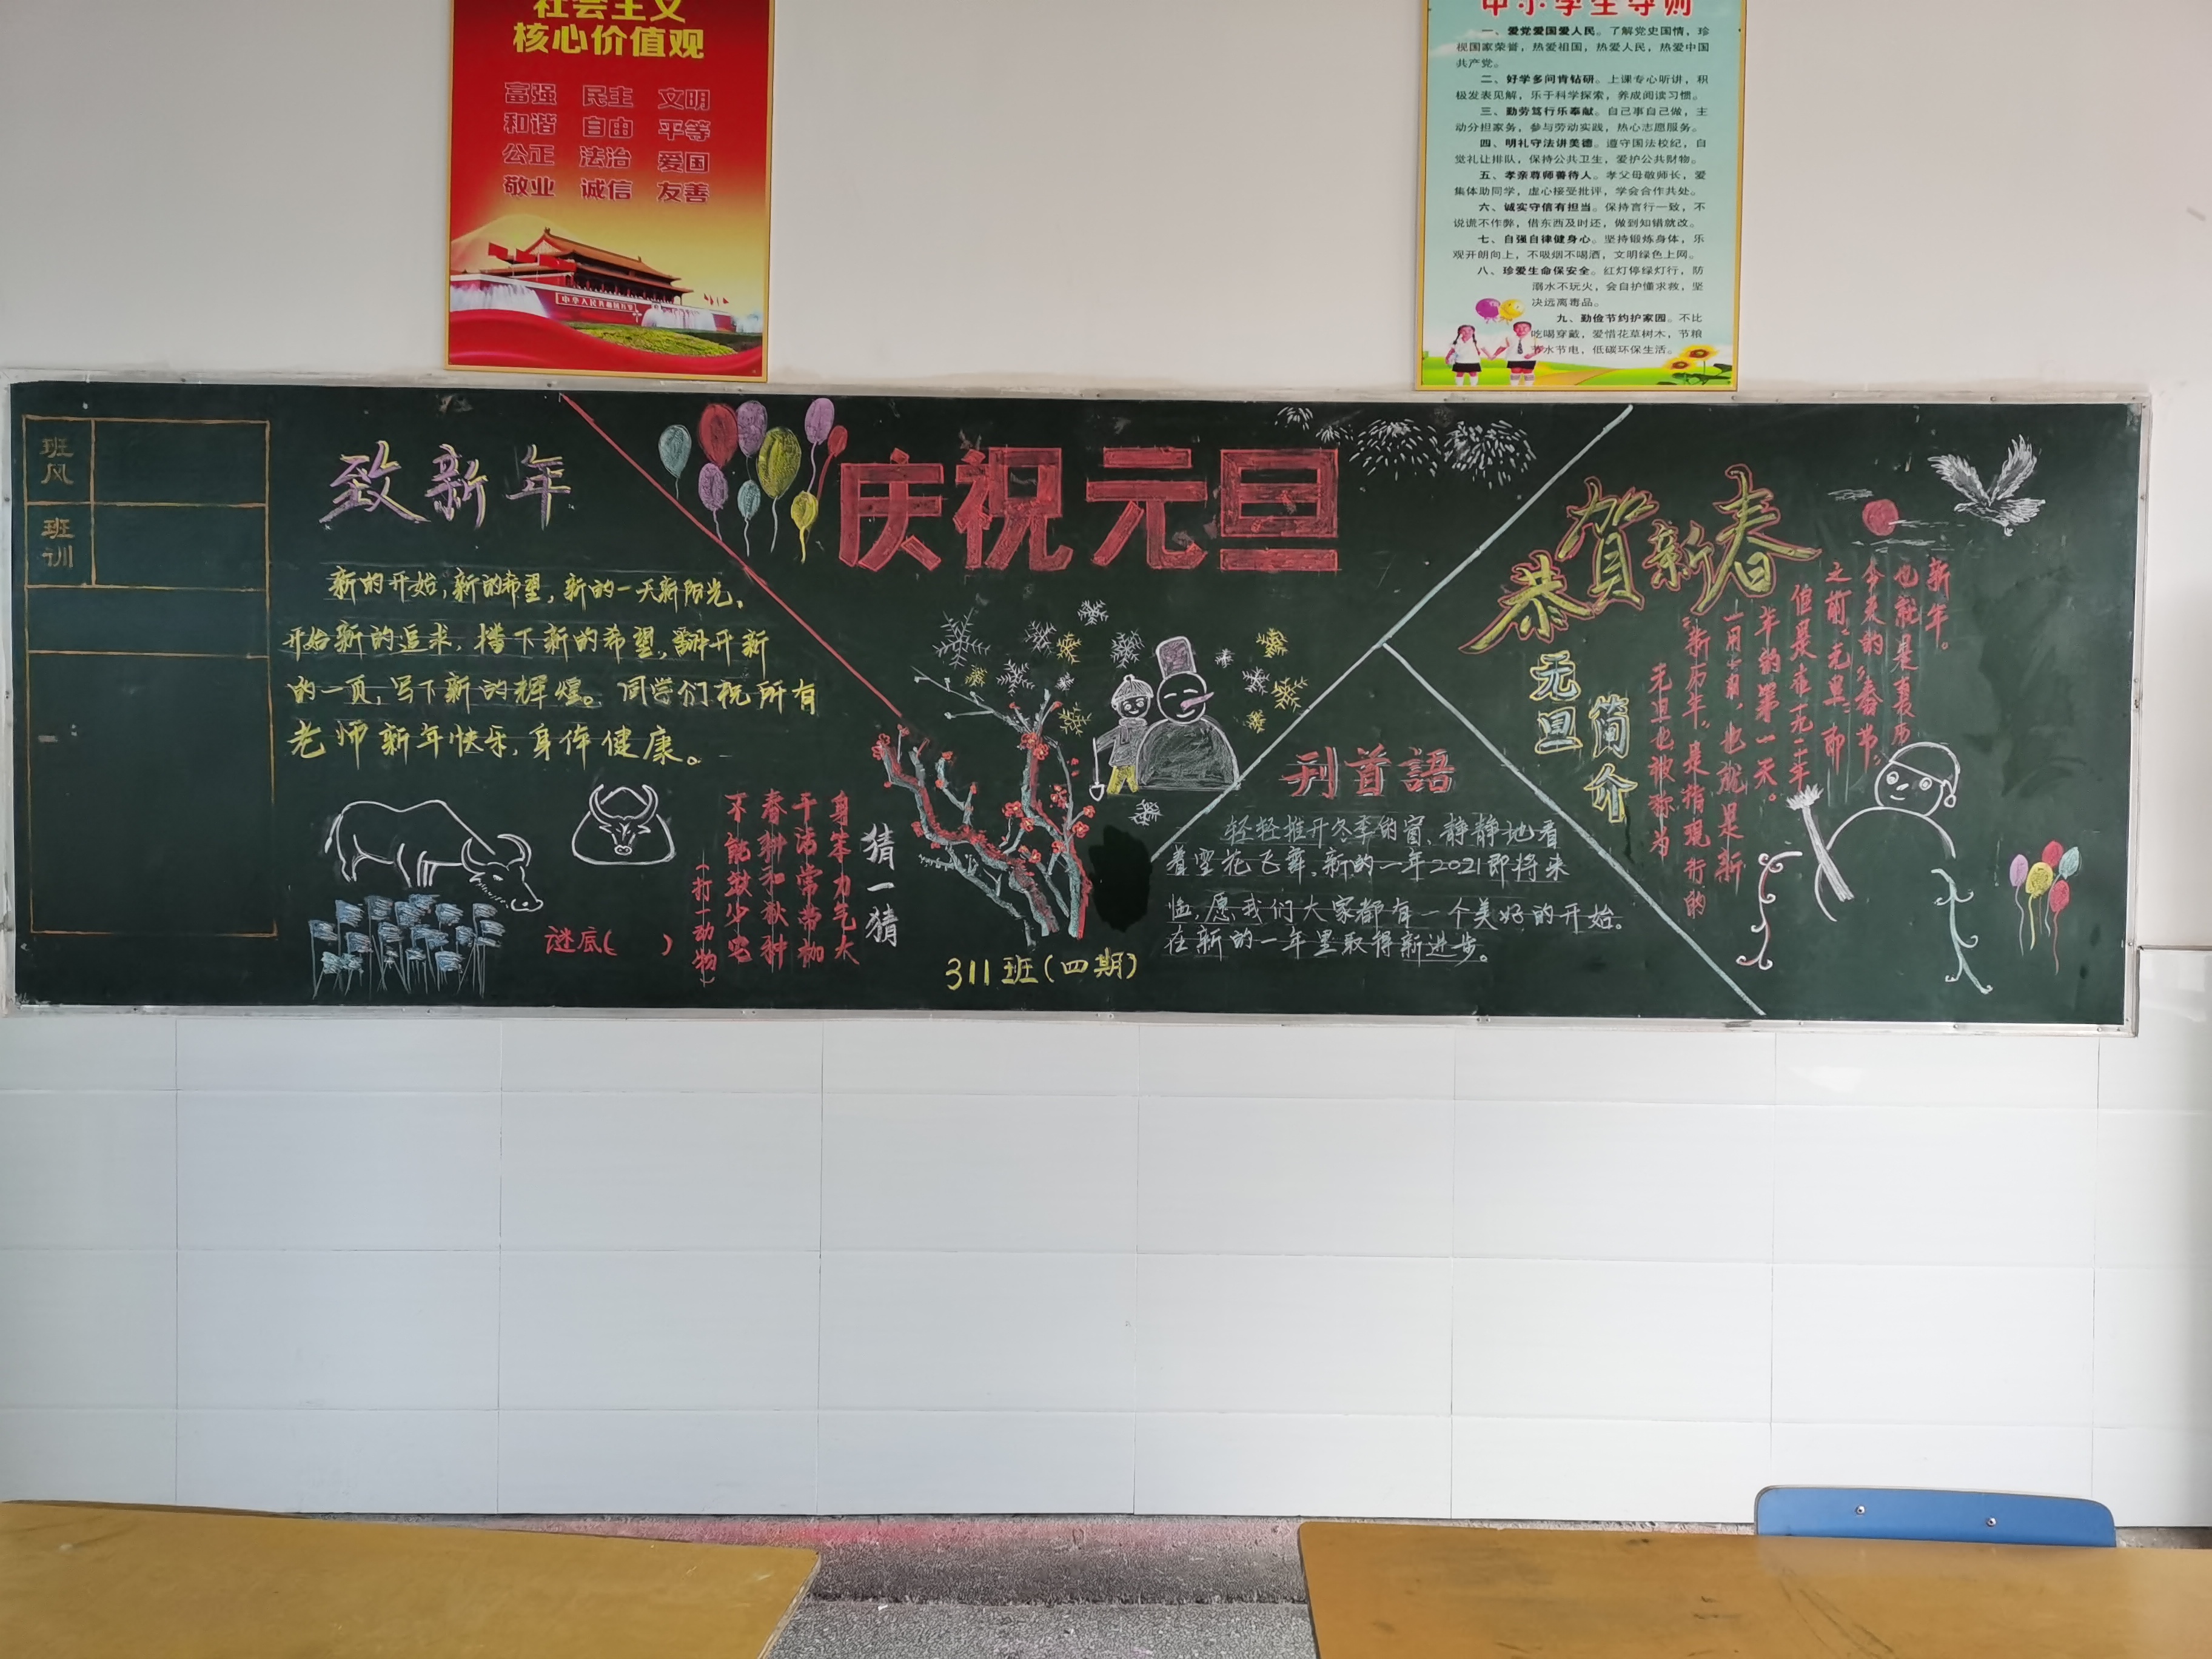 社会主义
核心价值观
富强 民主 文明
和谐 自由 平等
公正 法治 爱国
敬业 诚信 友善
中华人民共和国万岁
中小学生守则
一、爱党爱国爱人民。了解党史国情，珍
视国家荣誉，热爱祖国，热爱人民，热爱中国
共产党。
二、好学多问肯钻研。上课专心听讲，积
极发表见解，乐于科学探索，养成阅读习惯。
三、勤劳笃行乐奉献。自己事自己做，主
动分担家务，参与劳动实践，热心志愿服务。
四、明礼守法讲美德。遵守国法校纪，自
觉礼让排队，保持公共卫生，爱护公共财物。
五、孝亲尊师善待人。孝父母敬师长，爱
集体助同学，虚心接受批评，学会合作共处。
六、诚实守信有担当。保持言行一致，不
说谎不作弊，借东西及时还，做到知错就改。
七、自强自律健身心。坚持锻炼身体，乐
观开朗向上，不吸烟不喝酒，文明绿色上网。
八、珍爱生命保安全。红灯停绿灯行，防
溺水不玩火，会自护懂求救，坚
决远离毒品。
九、勤俭节约护家园。不比
吃喝穿戴，爱惜花草树木，节粮
节水节电，低碳环保生活。
班风
班训
致新年
新的开始，新的希望，新的一天新阳光，
开始新的追求，播下新的希望，翻开新
的一页，写下新的辉煌。同学们祝所有
老师新年快乐，身体健康。
猜一猜
身笨力气大
干活常带枷
春耕和秋种
不能缺少它
（打一动物）
谜底(　)
庆祝元旦
311班(四期)
刊首語
轻轻推开冬季的窗，静静地看
着雪花飞舞，新的一年2021即将来
临，愿我们大家都有一个美好的开始。
在新的一年里取得新进步。
恭贺新春
元旦
简介
元旦也被称为
“新历年”，是指现行的
一月一日，也就是新
年的第一天。
但是在一九一一年
之前“元旦”即
今天的“春节”，
也就是農历
新年。